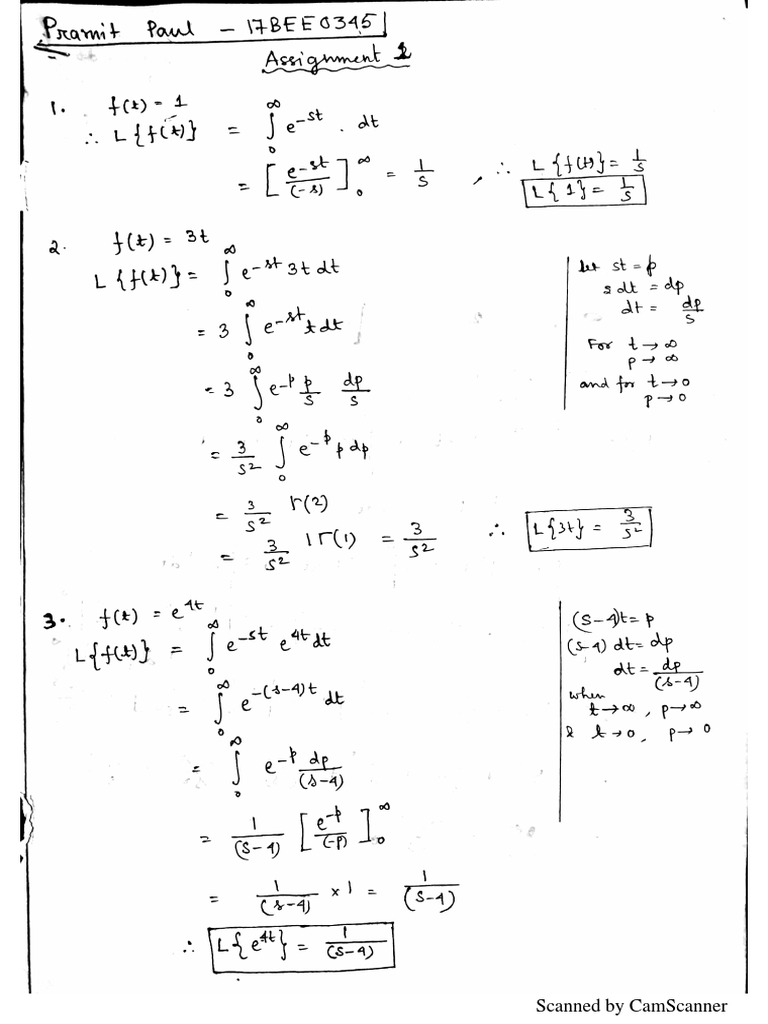 Pramit Paul - 17BEE0345
Assignment 2
1. f(t) = 1
∴ L{f(t)} = ∫₀^∞ e^-st . dt
= [e^-st/(-s)]₀^∞ = 1/s , ∴ L{f(t)} = 1/s
L{1} = 1/s
2. f(t) = 3t
L{f(t)} = ∫₀^∞ e^-st 3t dt
= 3 ∫₀^∞ e^-st t dt
= 3 ∫₀^∞ e^-p p/s dp/s
= 3/s² ∫₀^∞ e^-p p dp
= 3/s² Γ(2)
= 3/s² 1Γ(1) = 3/s² ∴ L{3t} = 3/s²
let st = p
s dt = dp
dt = dp/s
For t → ∞
p → ∞
and for t → 0
p → 0
3. f(t) = e^4t
L{f(t)} = ∫₀^∞ e^-st e^4t dt
= ∫₀^∞ e^-(s-4)t dt
= ∫₀^∞ e^-p dp/(s-4)
= 1/(s-4) [e^-p/(-p)]₀^∞
= 1/(s-4) × 1 = 1/(s-4)
∴ L{e^4t} = 1/(s-4)
(s-4)t = p
(s-4) dt = dp
dt = dp/(s-4)
when
t → ∞, p → ∞
& t → 0, p → 0
Scanned by CamScanner